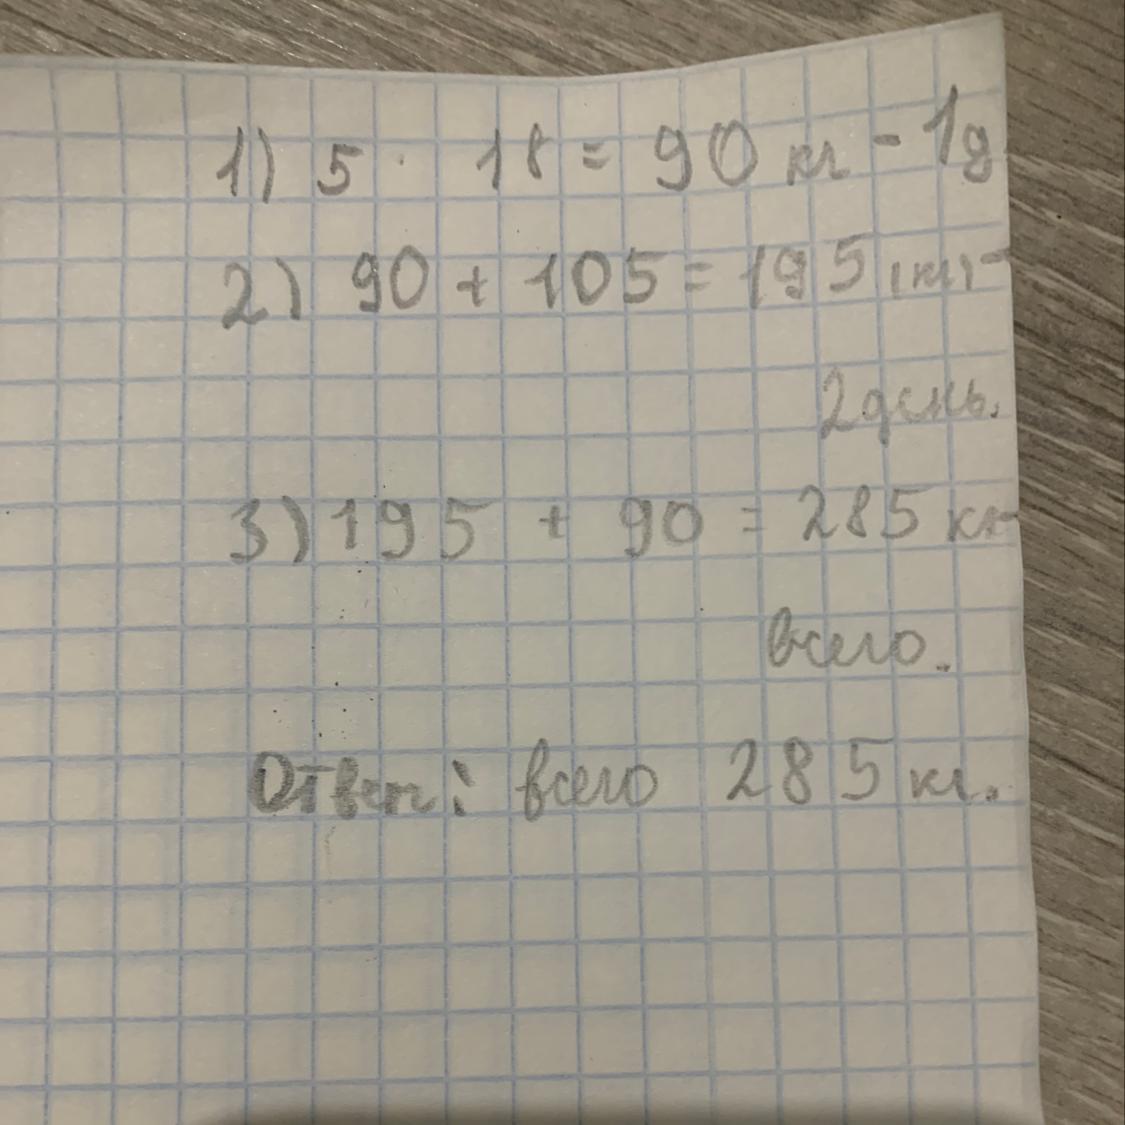 1) 5 · 18 = 90 кг - 1д
2) 90 + 105 = 195 (кг) -
2 день.
3) 195 + 90 = 285 кг -
всего.
Ответ: всего 285 кг.